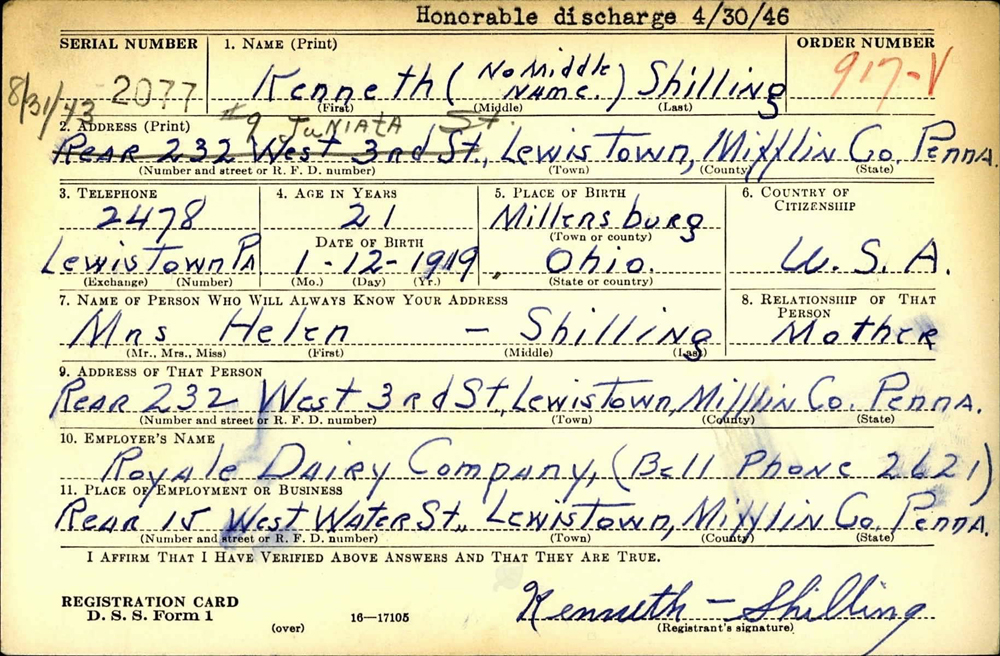 Honorable discharge 4/30/46
SERIAL NUMBER 1. NAME (Print) ORDER NUMBER
2077 Kenneth (No Middle Name.) Shilling 917-V
(First) (Middle) (Last)
8/31/43
#9 Juniata St.
2. ADDRESS (Print)
Rear 232 West 3rd St., Lewistown, Mifflin Co. Penna.
(Number and street or R. F. D. number) (Town) (County) (State)
3. TELEPHONE 4. AGE IN YEARS 5. PLACE OF BIRTH 6. COUNTRY OF CITIZENSHIP
2478 21 Millersburg
(Town or county)
DATE OF BIRTH
Lewistown Pa 1-12-1919 Ohio. U.S.A.
(Exchange) (Number) (Mo.) (Day) (Yr.) (State or country)
7. NAME OF PERSON WHO WILL ALWAYS KNOW YOUR ADDRESS 8. RELATIONSHIP OF THAT PERSON
Mrs Helen - Shilling Mother
(Mr., Mrs., Miss) (First) (Middle) (Last)
9. ADDRESS OF THAT PERSON
Rear 232 West 3rd St, Lewistown, Mifflin Co. Penna.
(Number and street or R. F. D. number) (Town) (County) (State)
10. EMPLOYER'S NAME
Royale Dairy Company, (Bell Phone 2621)
11. PLACE OF EMPLOYMENT OR BUSINESS
Rear 15 West Water St., Lewistown, Mifflin Co. Penna.
(Number and street or R. F. D. number) (Town) (County) (State)
I AFFIRM THAT I HAVE VERIFIED ABOVE ANSWERS AND THAT THEY ARE TRUE.
REGISTRATION CARD
D. S. S. Form 1 (over) 16—17105
Kenneth - Shilling
(Registrant's signature)